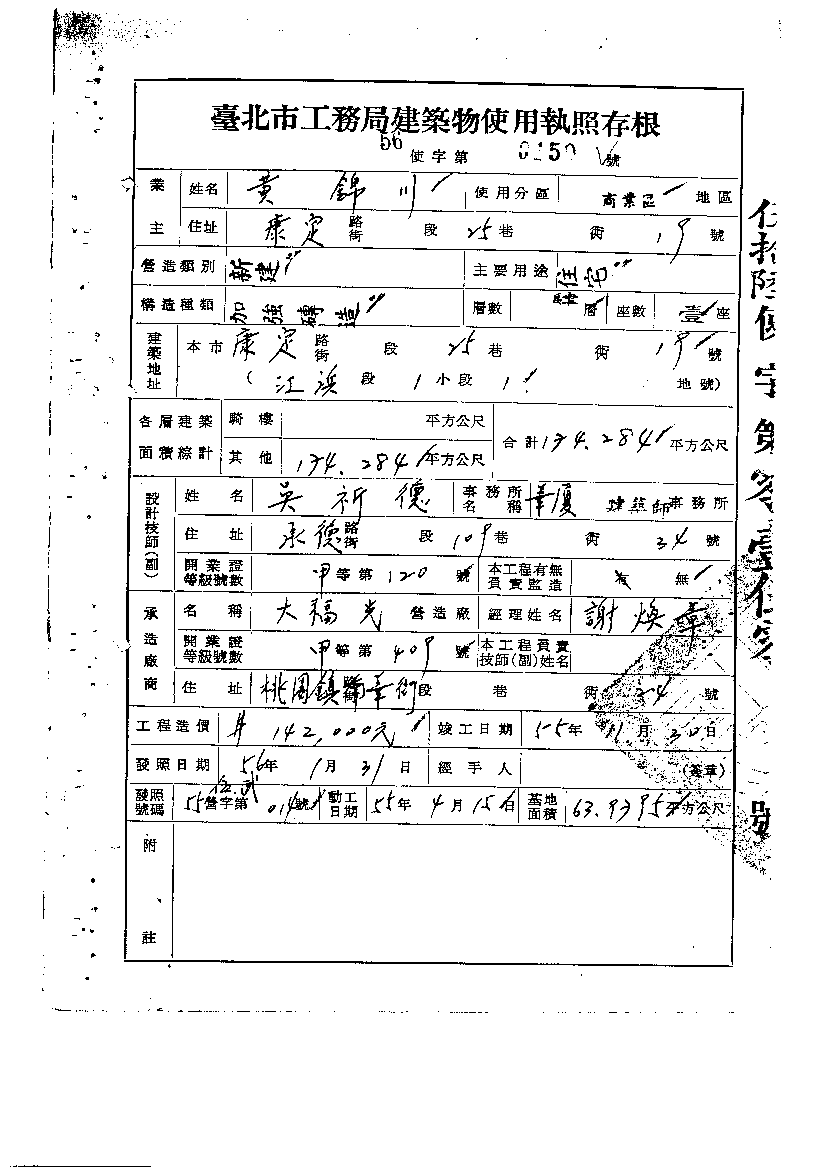 臺北市工務局建築物使用執照存根
56 使字第 0150 號
業主 姓名 黃錦川 使用分區 商業區 地區
住址 康定 路街 段 25 巷 街 19 號
營造類別 新建 主要用途 住宅
構造種類 加強磚造 層數 層 座數 壹座
建築地址 本市 康定 路街 段 25 巷 街 19 號
(江浜 段 1 小段 1 地號)
各層建築面積綜計 騎樓 平方公尺 合計 174.284 平方公尺
其他 174.284 平方公尺
設計技師(副) 姓名 吳祈德 事務所名稱 華廈 建築師事務所
住址 承德 路街 段 109 巷 街 34 號
開業證等級號數 甲等第 120 號 本工程有無負責監造 有 無
承造廠商 名稱 大福光 營造廠 經理姓名 謝煥章
開業證等級號數 甲等第 409 號 本工程負責技師(副)姓名
住址 桃園鎮 華街 段 巷 街 24 號
工程造價 142,000元 竣工日期 55年 11月 30日
發照日期 56年 1月 31日 經手人 (簽章)
發照號碼 55營字第 014 號 動工日期 55年 4月 15日 基地面積 63.9395 平方公尺
附註
伍拾陸使字第零壹伍零號